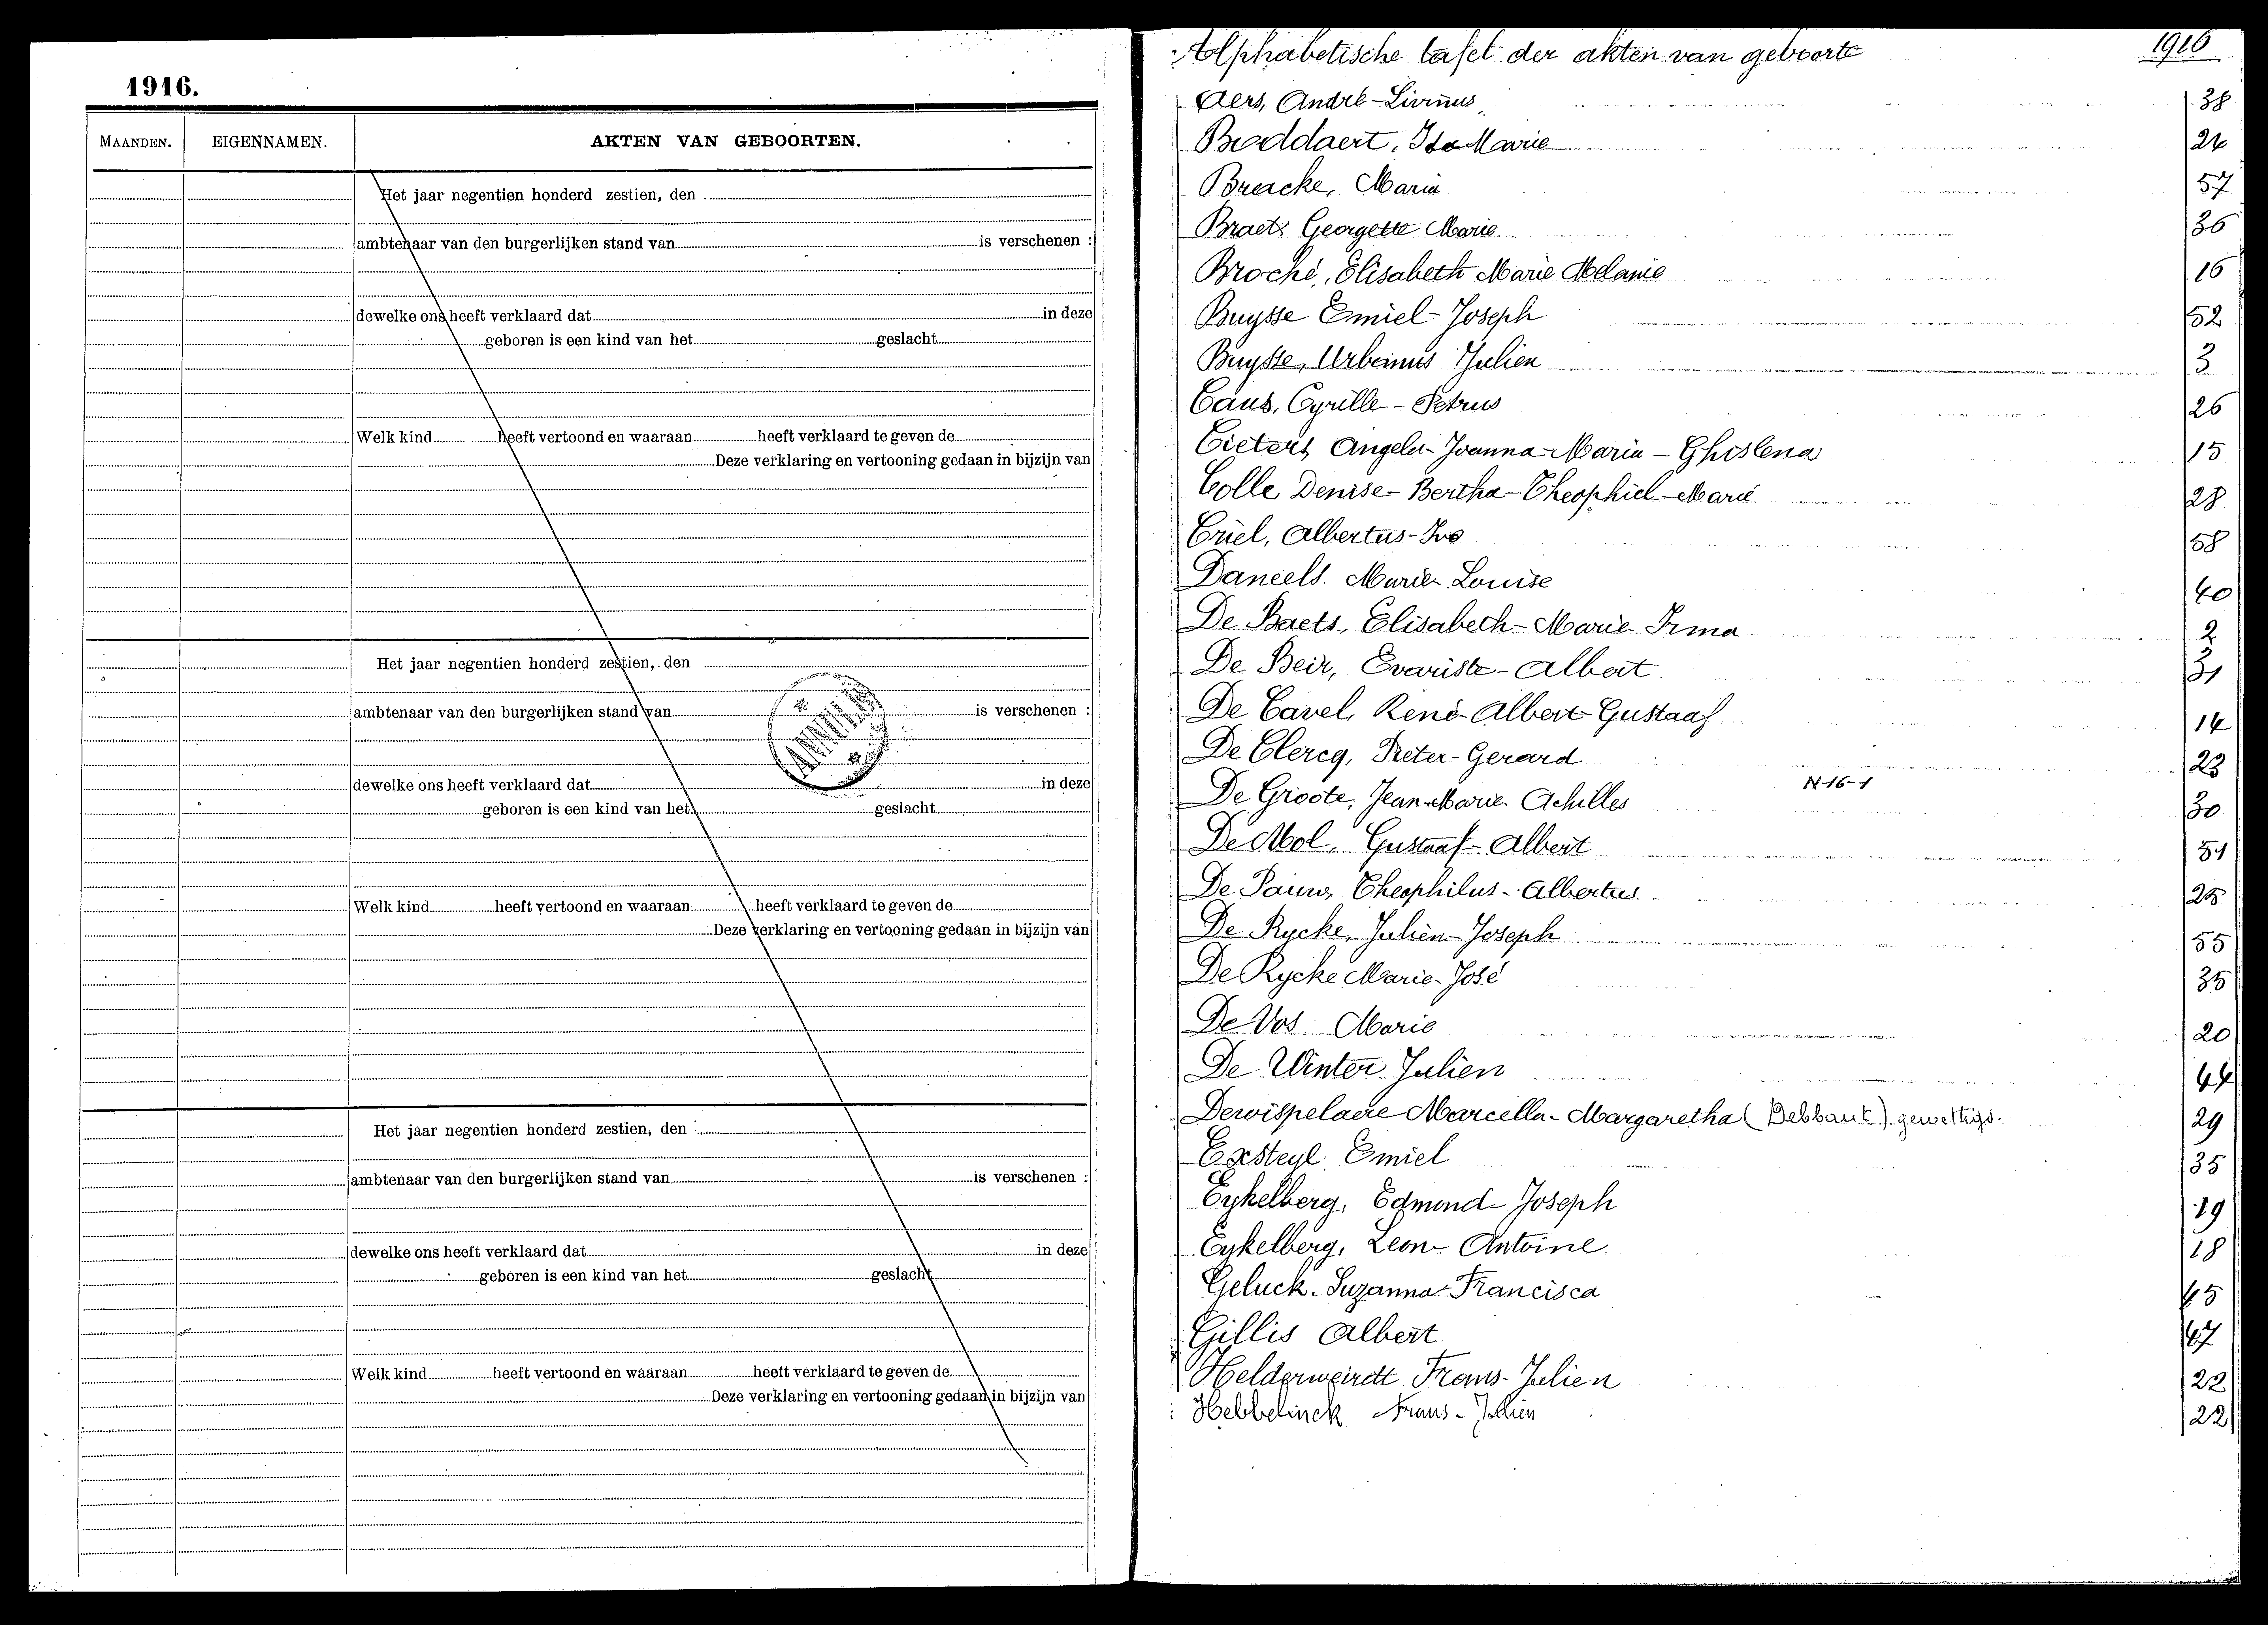 1916.
MAANDEN. EIGENNAMEN. AKTEN VAN GEBOORTEN.
Het jaar negentien honderd zestien, den
ambtenaar van den burgerlijken stand van is verschenen :
dewelke ons heeft verklaard dat in deze
geboren is een kind van het geslacht
Welk kind heeft vertoond en waaraan heeft verklaard te geven de
Deze verklaring en vertooning gedaan in bijzijn van
Het jaar negentien honderd zestien, den
ambtenaar van den burgerlijken stand van is verschenen :
ANNULÉ
dewelke ons heeft verklaard dat in deze
geboren is een kind van het geslacht
Welk kind heeft vertoond en waaraan heeft verklaard te geven de
Deze verklaring en vertooning gedaan in bijzijn van
Het jaar negentien honderd zestien, den
ambtenaar van den burgerlijken stand van is verschenen :
dewelke ons heeft verklaard dat in deze
geboren is een kind van het geslacht
Welk kind heeft vertoond en waaraan heeft verklaard te geven de
Deze verklaring en vertooning gedaan in bijzijn van
Alphabetische tafel der akten van geboorte 1916
Aers, André-Livinus 38
Boddaert, Ida Marie 24
Braecke, Maria 57
Braet, Georgette Marie 36
Broché, Elisabeth Marie Melanie 16
Buysse Emiel-Joseph 52
Buysse, Urbanus Julien 3
Caus, Cyrille-Petrus 26
Cieters Angela-Joanna-Maria-Ghislena 15
Colle Denise-Bertha-Theophiel-Marie 28
Criel, Albertus-Ivo 58
Daneels Marie-Louise 40
De Baets, Elisabeth-Marie-Irma 2
De Beir, Evariste-Albert 31
De Cavel, René-Albert-Gustaaf 14
De Clercq, Pieter-Gerard 23
De Groote, Jean-Marie-Achilles N-16-1 30
De Mol, Gustaaf-Albert 51
De Pauw, Theophilus-Albertus 25
De Rycke, Julien-Joseph 55
De Rycke Marie-José 35
De Vos Marie 20
De Winter Julien 44
Dewispelaere Marcella-Margaretha (Debbaut) gewettigd. 29
Exsteyl Emiel 35
Eykelberg, Edmond-Joseph 19
Eykelberg, Leon-Antoine 18
Geluck Suzanna-Francisca 45
Gillis Albert 47
Helderweirdt Frans-Julien 22
Hebbelinck Frans-Julien 22